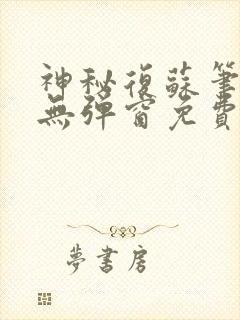 神秘復蘇筆
無彈窗免費
夢書房